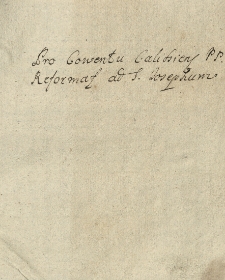 Pro Conventu Calissiens PP.
Reformat ad S. Josephum